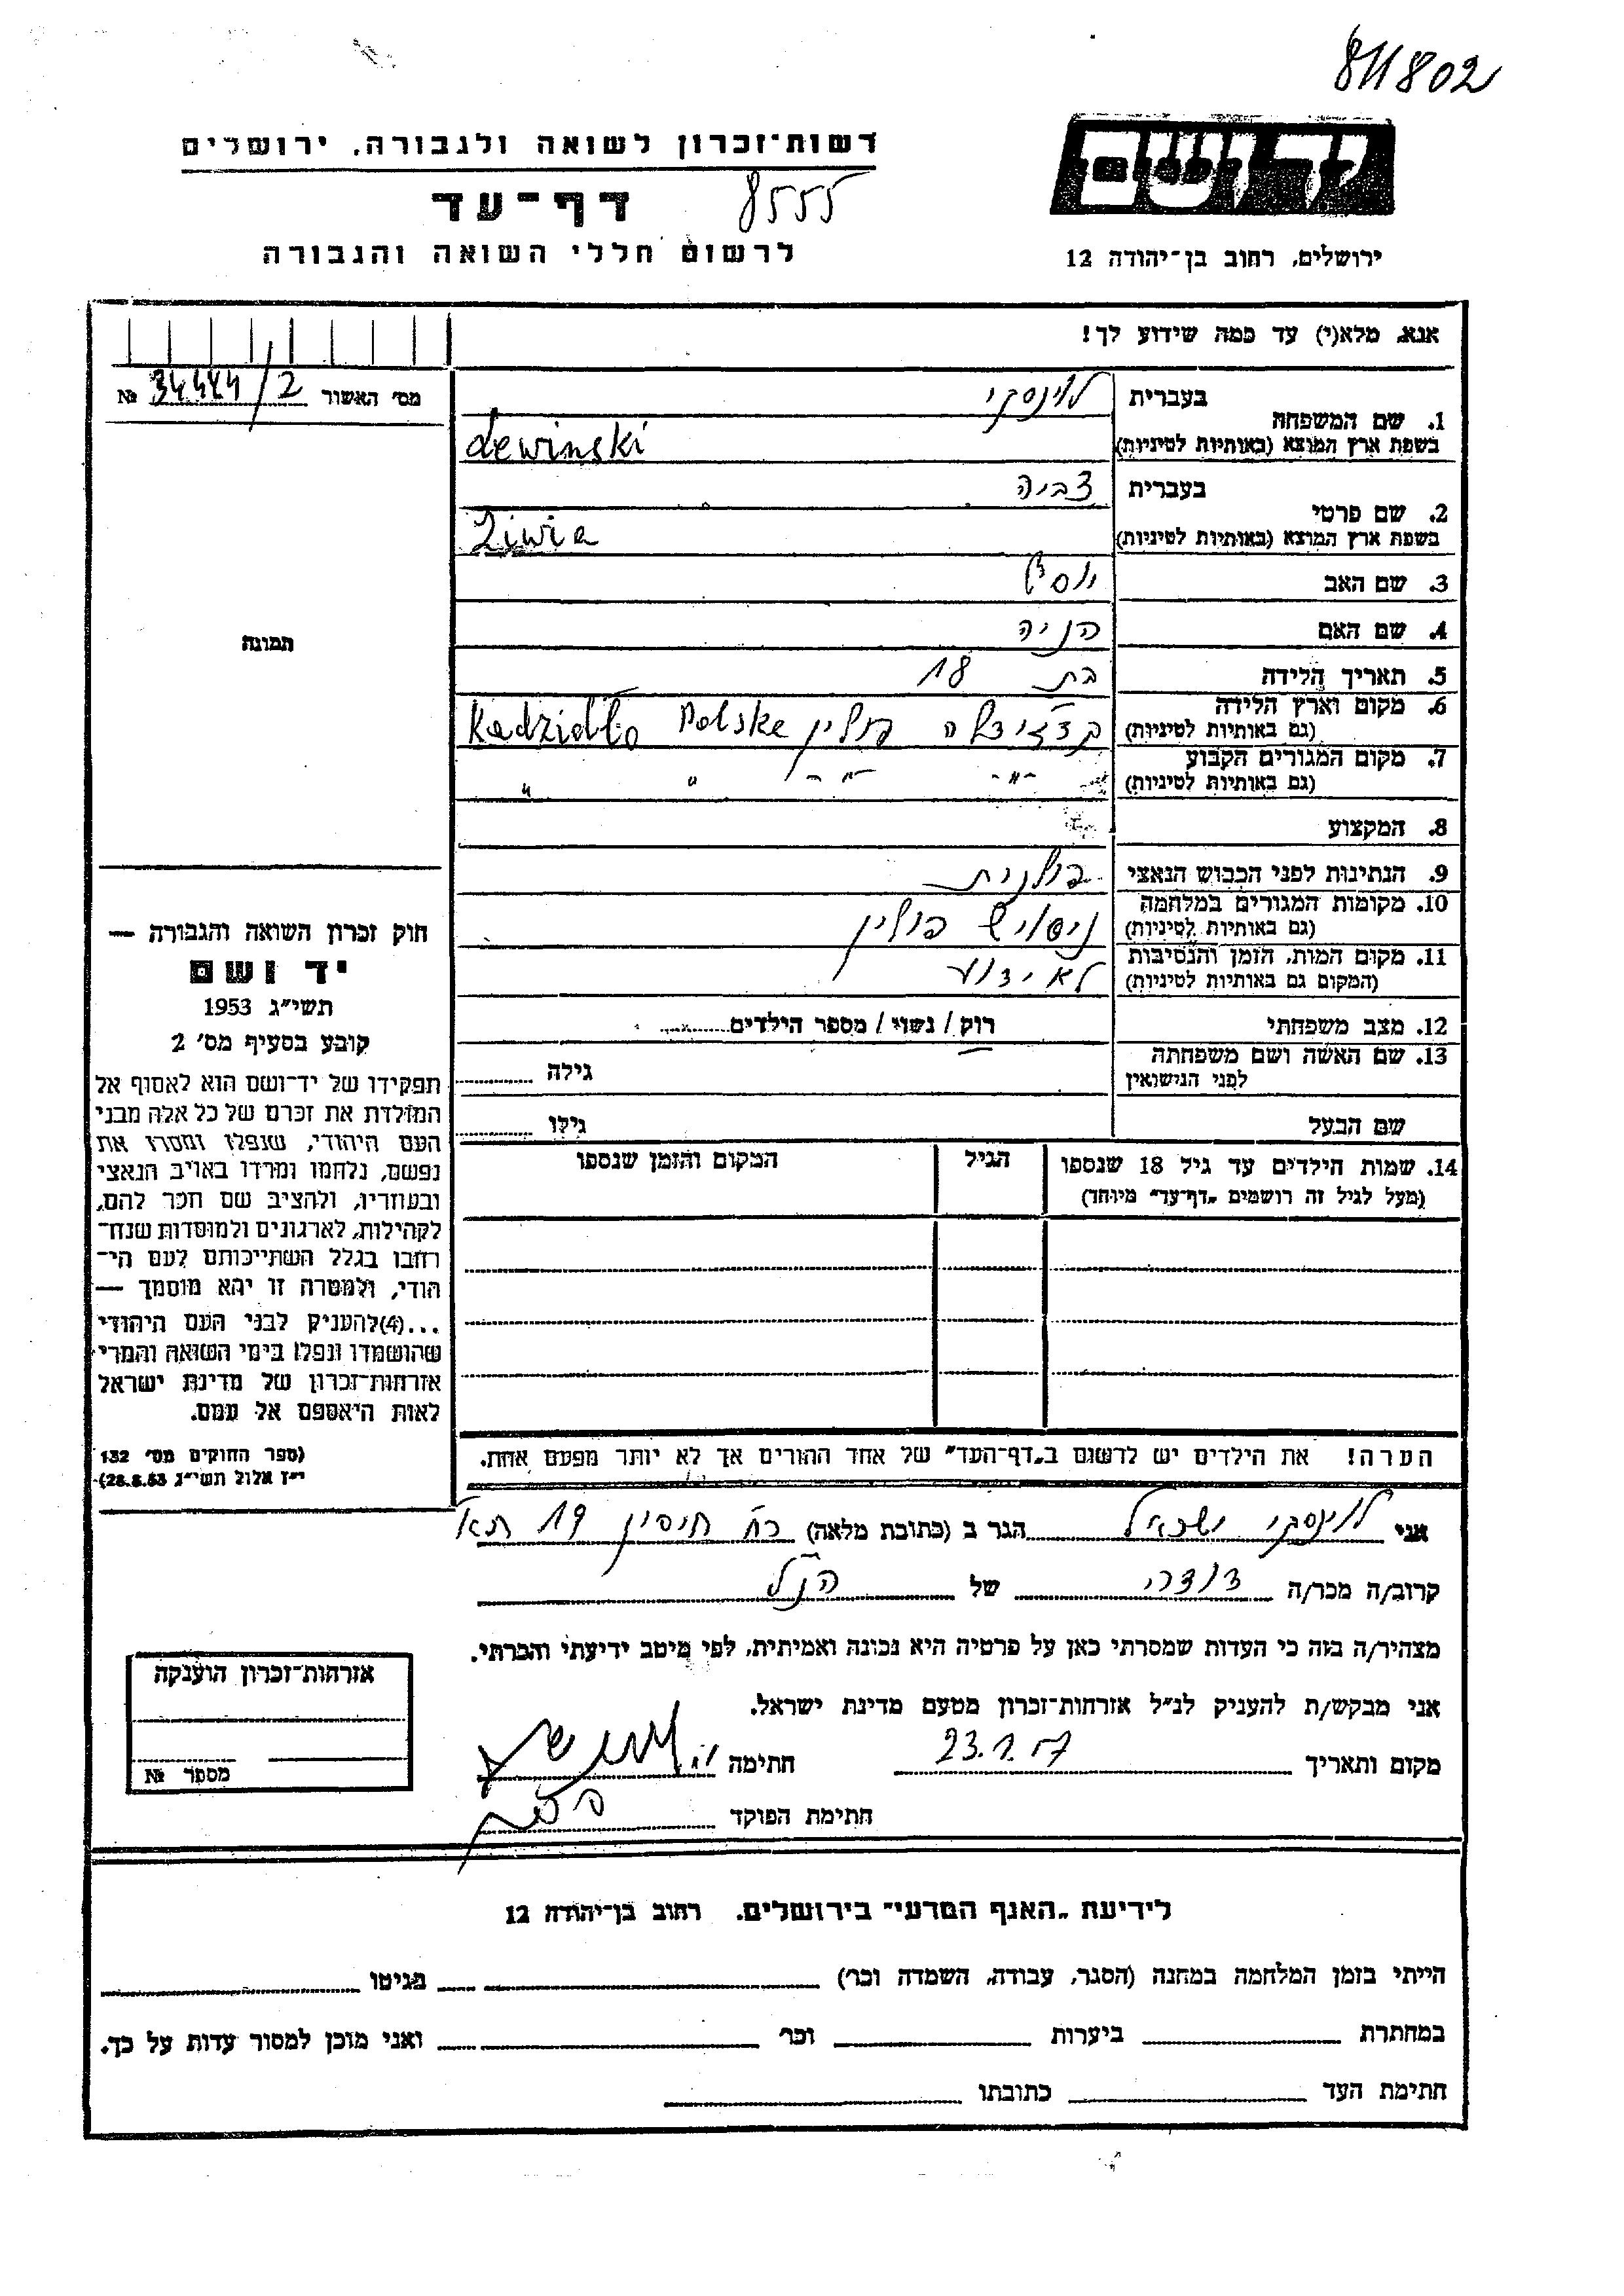 811802
רשות־זכרון לשואה ולגבורה, ירושלים
דף־עד 8555
לרשום חללי השואה והגבורה
יד ושם
ירושלים, רחוב בן־יהודה 12
אנא, מלא(י) עד כמה שידוע לך!
מס׳ האשור 34444/2 №
1. שם המשפחה
בעברית לוינסקי
בשפת ארץ המוצא (באותיות לטיניות) Lewinski
2. שם פרטי
בעברית צביה
בשפת ארץ המוצא (באותיות לטיניות) Ziwia
3. שם האב יוסף
4. שם האם הניה
5. תאריך הלידה בת 18
6. מקום וארץ הלידה
(גם באותיות לטיניות) פולין Kadzidło Polska
7. מקום המגורים הקבוע
(גם באותיות לטיניות) -"- -"- " "
8. המקצוע
9. הנתינות לפני הכבוש הנאצי פולנית
10. מקומות המגורים במלחמה
(גם באותיות לטיניות) פולין
11. מקום המות, הזמן והנסיבות
(המקום גם באותיות לטיניות) לא ידוע
12. מצב משפחתי רוק / נשוי / מספר הילדים
13. שם האשה ושם משפחתה
לפני הנישואין גילה
שם הבעל גילו
14. שמות הילדים עד גיל 18 שנספו הגיל המקום והזמן שנספו
(מעל לגיל זה רושמים „דף־עד" מיוחד)
הערה! את הילדים יש לרשום ב„דף־העד" של אחד ההורים אך לא יותר מפעם אחת.
תמונה
חוק זכרון השואה והגבורה —
יד ושם
תשי״ג 1953
קובע בסעיף מס׳ 2
תפקידו של יד־ושם הוא לאסוף אל
המולדת את זכרם של כל אלה מבני
העם היהודי, שנפלו ומסרו את
נפשם, נלחמו ומרדו באויב הנאצי
ובעוזריו, ולהציב שם וזכר להם,
לקהילות, לארגונים ולמוסדות שנח־
רבו בגלל השתייכותם לעם הי־
הודי, ולמטרה זו יהא מוסמך —
...(4)להעניק לבני העם היהודי
שהושמדו ונפלו בימי השואה והמרי
אזרחות־זכרון של מדינת ישראל
לאות היאספם אל עמם.
(ספר החוקים מס׳ 132
י״ז אלול תשי״ג 28.8.53)
אני לוינסקי ישראל הגר ב (כתובת מלאה) רח׳ חיסין 19 ת״א
קרוב/ה מכר/ה דודה של הנ״ל
מצהיר/ה בזה כי העדות שמסרתי כאן על פרטיה היא נכונה ואמיתית, לפי מיטב ידיעתי והכרתי.
אני מבקש/ת להעניק לנ״ל אזרחות־זכרון מטעם מדינת ישראל.
מקום ותאריך 23.1.57 חתימה
חתימת הפוקד
אזרחות־זכרון הוענקה
מספר №
לידיעת „האנף המדעי" בירושלים, רחוב בן־יהודה 12
הייתי בזמן המלחמה במחנה (הסגר, עבודה, השמדה וכו׳) בגיטו
במחתרת ביערות וכו׳ ואני מוכן למסור עדות על כך.
חתימת העד כתובתו